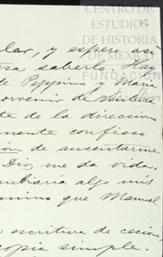 CENTRO DE
ESTUDIOS
DE HISTORIA
DE MÉXICO
FUNDACIÓN
ler, y espero así
esa saberlo. Hay
de Pepynino y María
orvenir de
te de la direccion
mente confieso
ion de ausentarme
Dios me da vida.
mbiaría algo más
amino que Manuel
escritura de cesion,
opia simple.